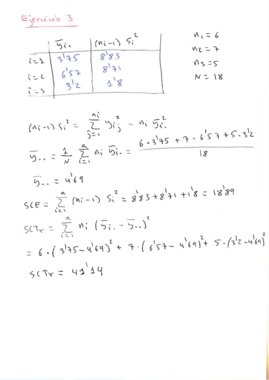 Ejercicio 3
ȳi. (ni-1) Si² n₁ = 6
i=1 3'75 8'83 n₂ = 7
i=2 6'57 8'71 n₃ = 5
i=3 3'2 1'8 N = 18
(ni-1) Si² = Σ_{j=1}^{ni} yij² - ni ȳi.²
ȳ.. = 1/N Σ_{i=1}^{a} ni ȳi. = (6·3'75 + 7·6'57 + 5·3'2)/18
ȳ.. = 4'69
SCE = Σ_{i=1}^{a} (ni-1) Si² = 8'83 + 8'71 + 1'8 = 18'89
SCTr = Σ_{i=1}^{a} ni (ȳi. - ȳ..)²
= 6·(3'75-4'69)² + 7·(6'57-4'69)² + 5·(3'2-4'69)²
SCTr = 41'14